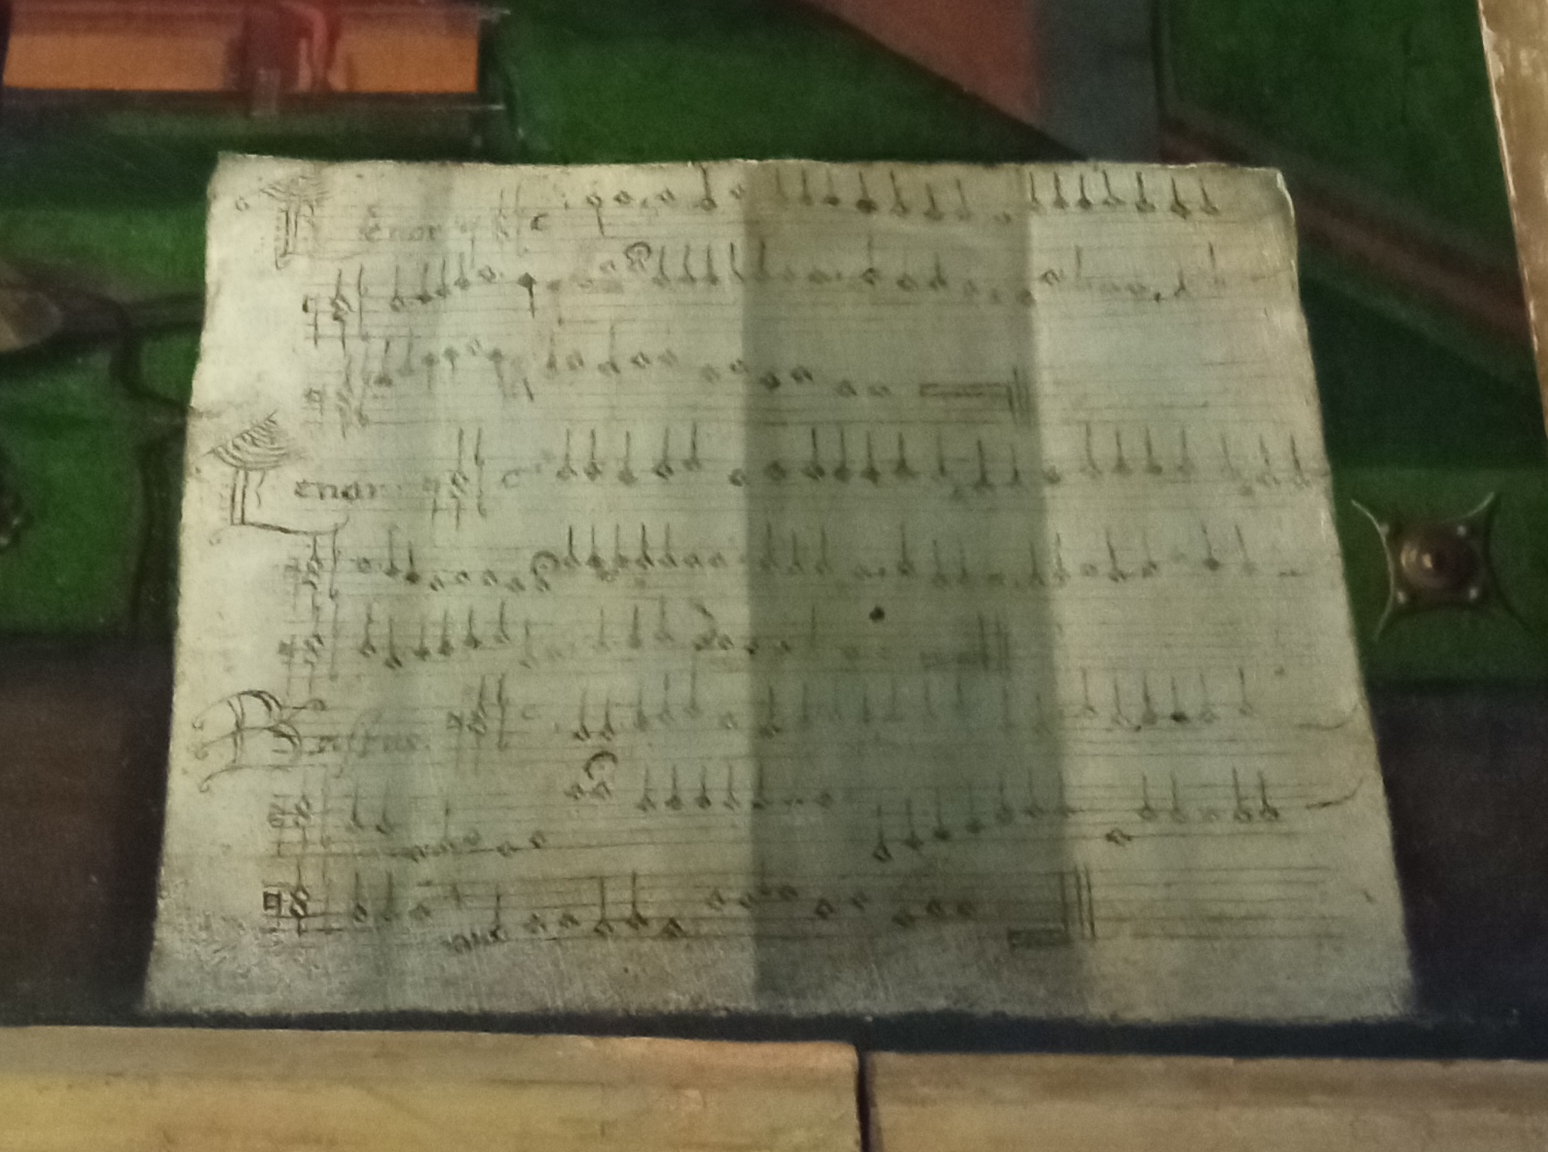 Tenor
Tenor
Bassus